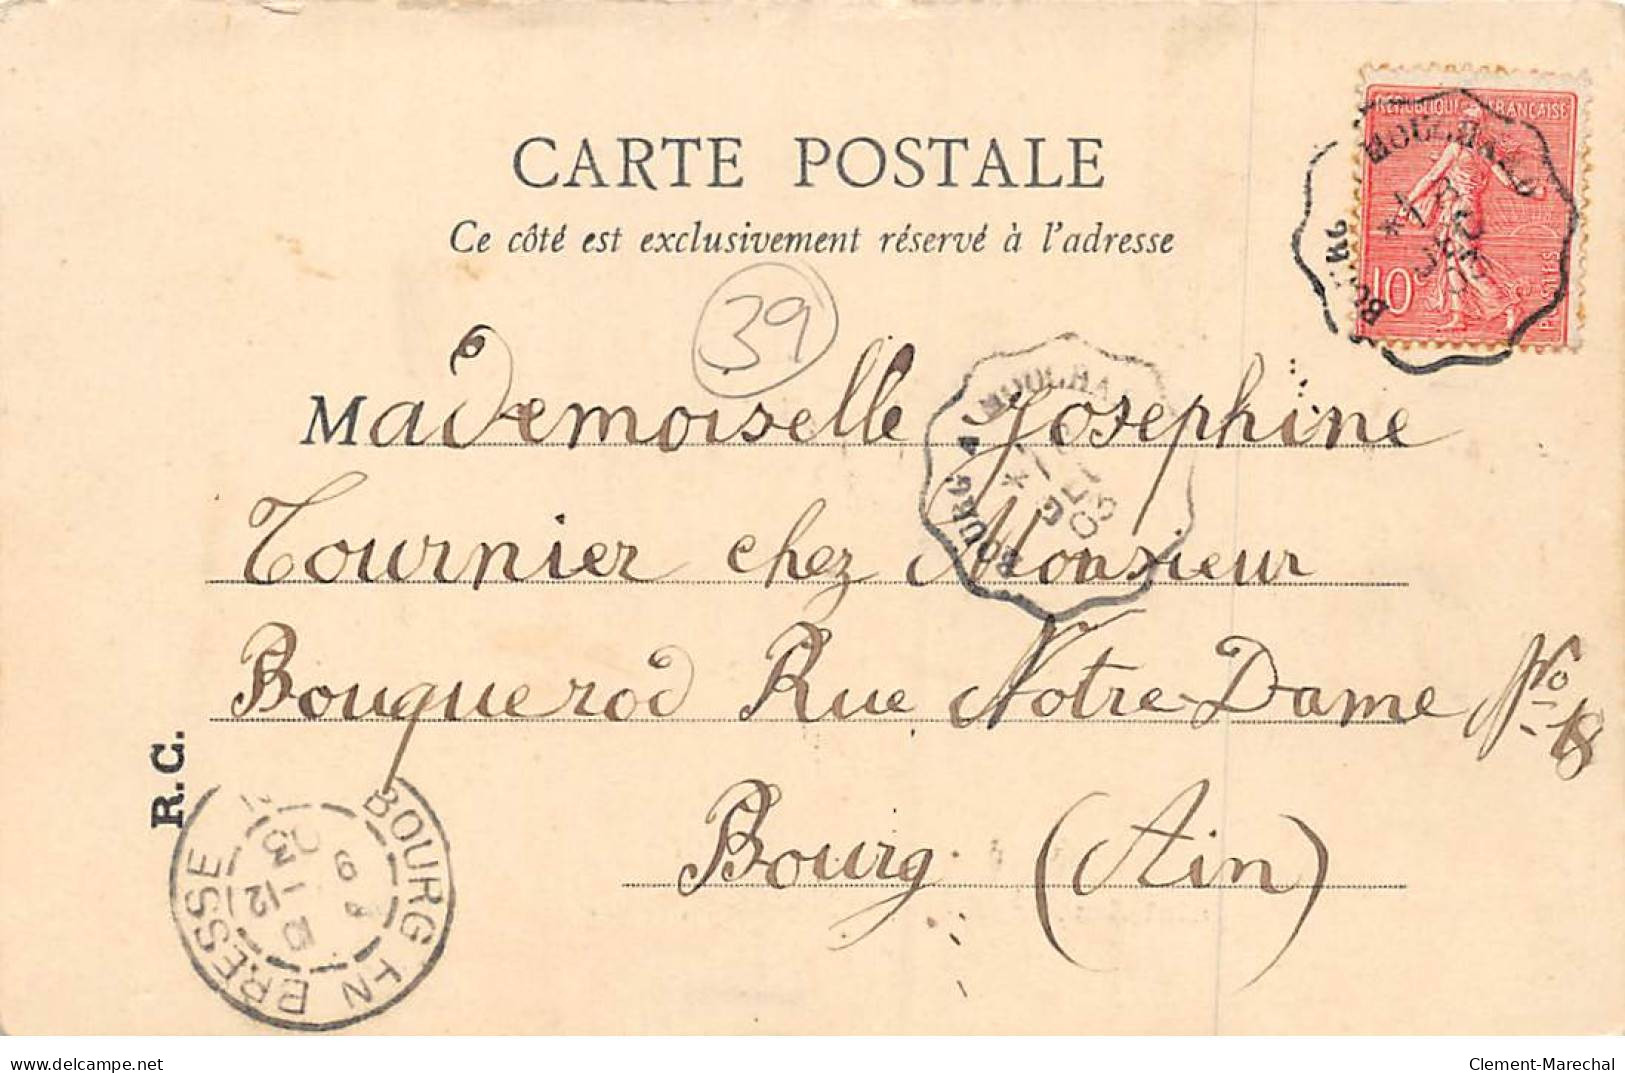 CARTE POSTALE
Ce côté est exclusivement réservé à l'adresse
RÉPUBLIQUE FRANÇAISE
10
39
Mademoiselle Josephine
Tournier chez Monsieur
Bouquerod Rue Notre-Dame No 18
Bourg (Ain)
R.C.
BOURG A MOUCHARD
03
BOURG EN BRESSE
12
03
delcampe.net
Clement-Marechal